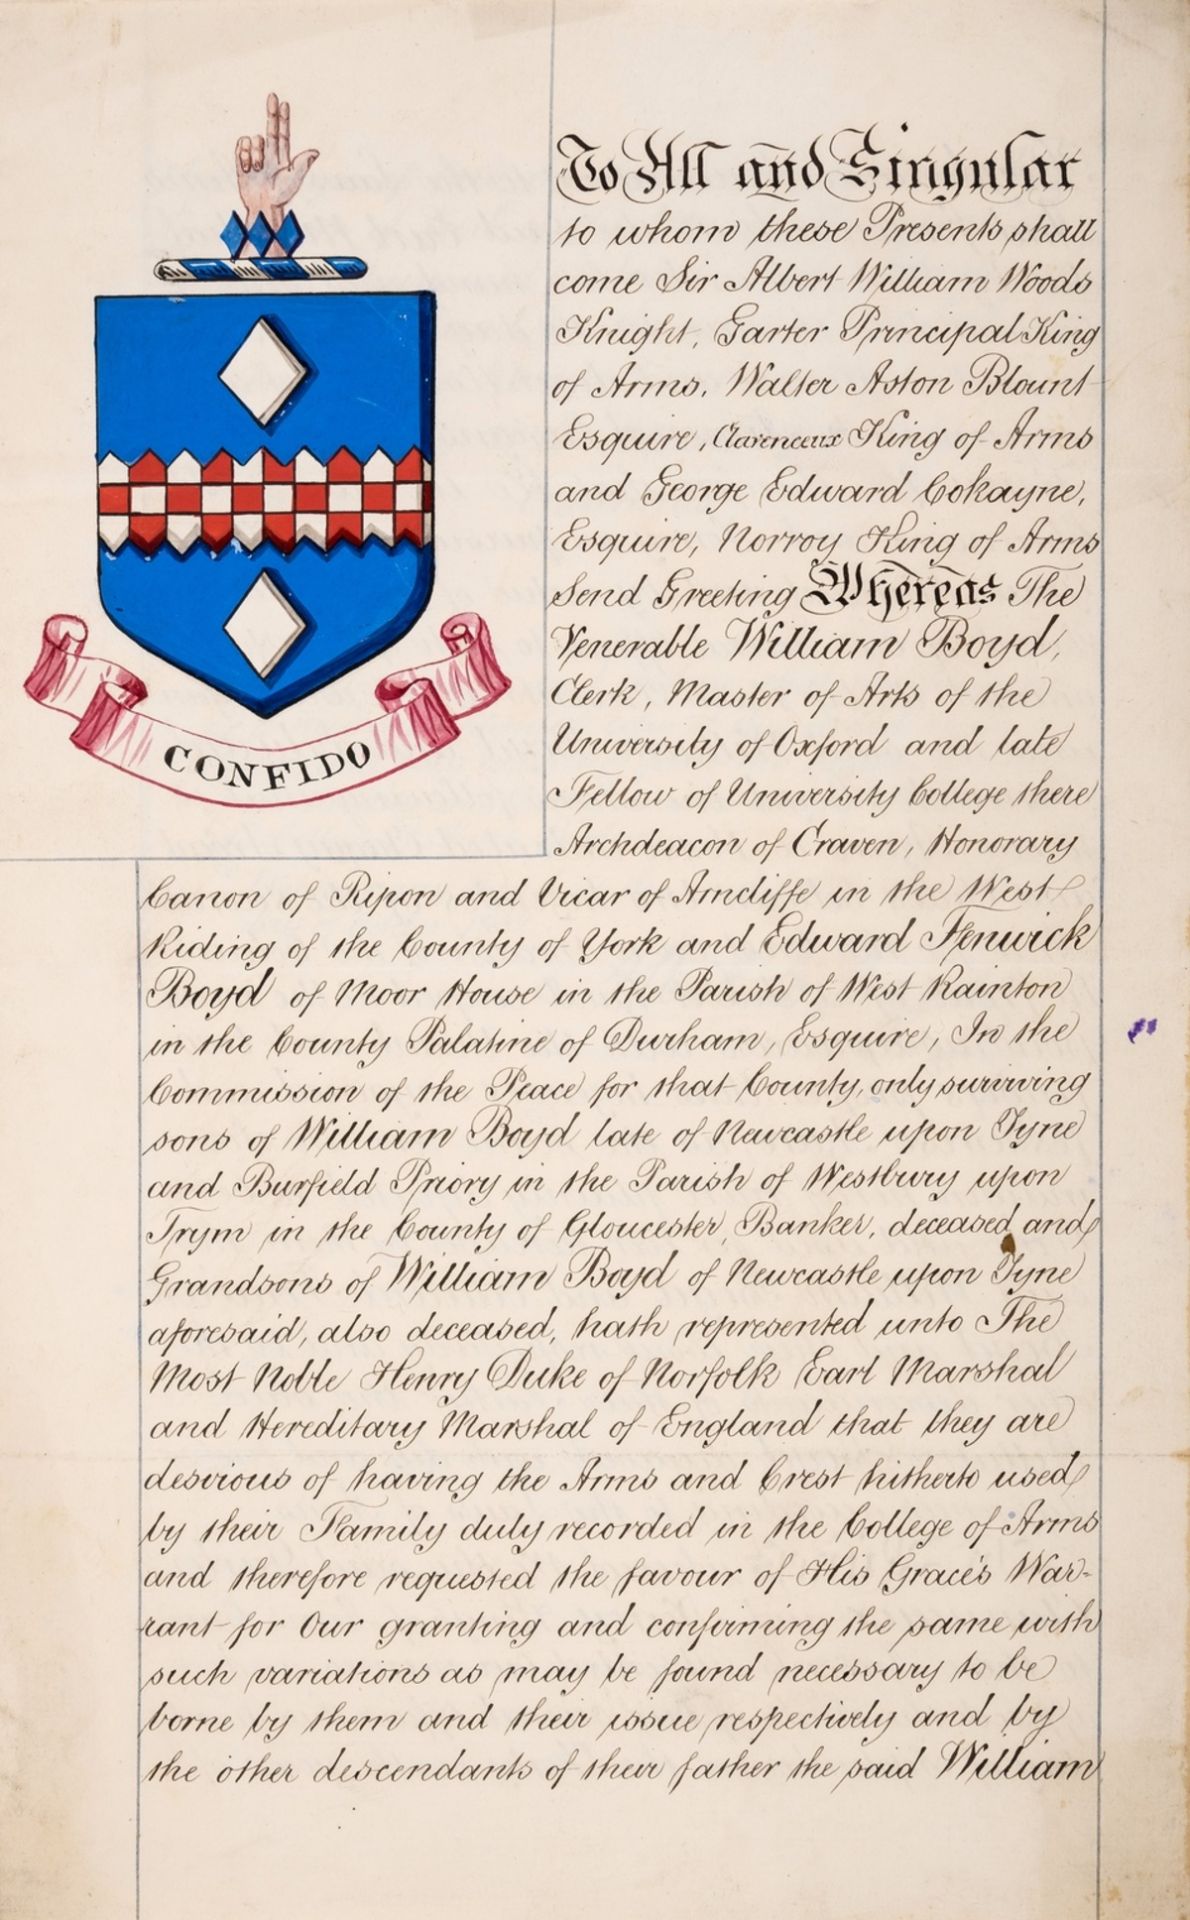 CONFIDO
To All and Singular
to whom these Presents shall
come Sir Albert William Woods
Knight, Garter Principal King
of Arms, Walter Aston Blount
Esquire, Clarenceux King of Arms
and George Edward Cokayne,
Esquire, Norroy King of Arms
Send Greeting Whereas The
Venerable William Boyd,
Clerk, Master of Arts of the
University of Oxford and late
Fellow of University College there
Archdeacon of Craven, Honorary
Canon of Ripon and Vicar of Arncliffe in the West
Riding of the County of York and Edward Fenwick
Boyd of Moor House in the Parish of West Rainton
in the County Palatine of Durham, Esquire, In the
Commission of the Peace for that County, only surviving
sons of William Boyd late of Newcastle upon Tyne
and Burfield Priory in the Parish of Westbury upon
Trym in the County of Gloucester, Banker, deceased and
Grandsons of William Boyd of Newcastle upon Tyne
aforesaid, also deceased, hath represented unto The
Most Noble Henry Duke of Norfolk Earl Marshal
and Hereditary Marshal of England that they are
desirous of having the Arms and Crest hitherto used
by their Family duly recorded in the College of Arms
and therefore requested the favour of His Grace's War-
rant for Our granting and confirming the same with
such variations as may be found necessary to be
borne by them and their issue respectively and by
the other descendants of their father the said William